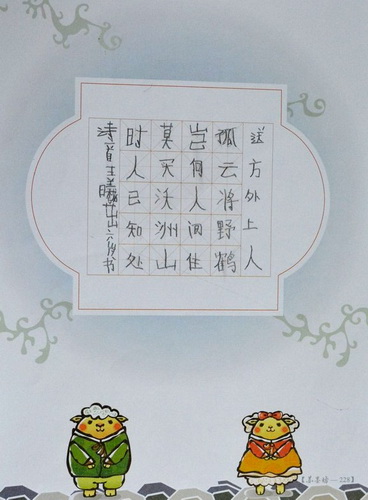 送方外上人
孤云将野鹤
岂何人间住
莫买沃洲山
时人已知处
诗音王六岁书
228】